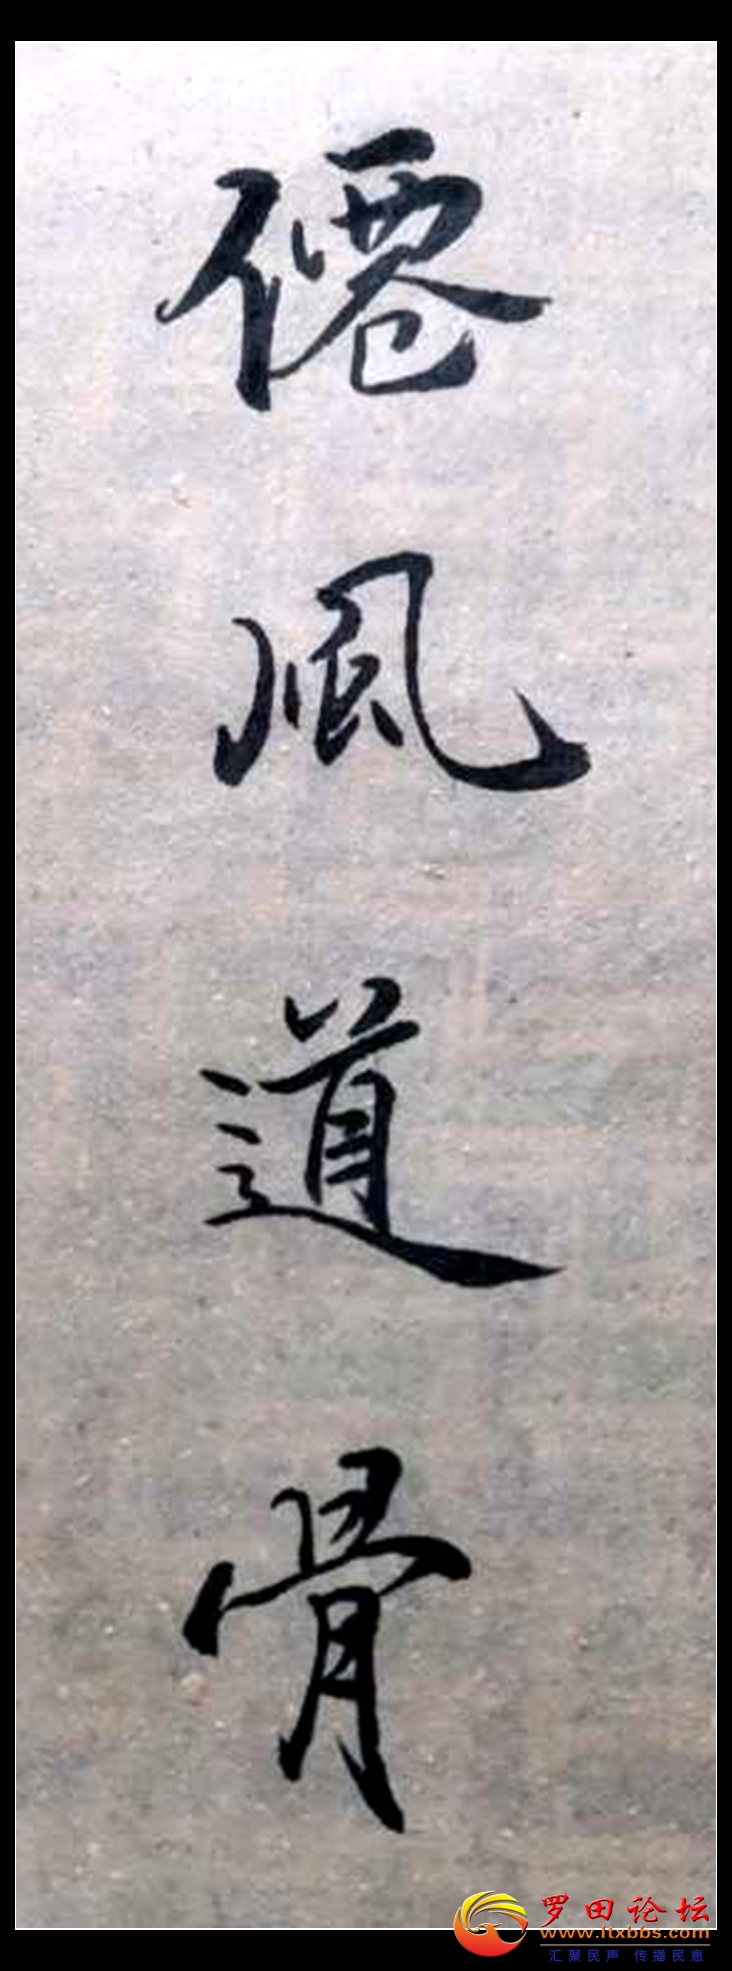 僊風道骨
罗田论坛
www.ltxbbs.com
汇聚民声 传播民意